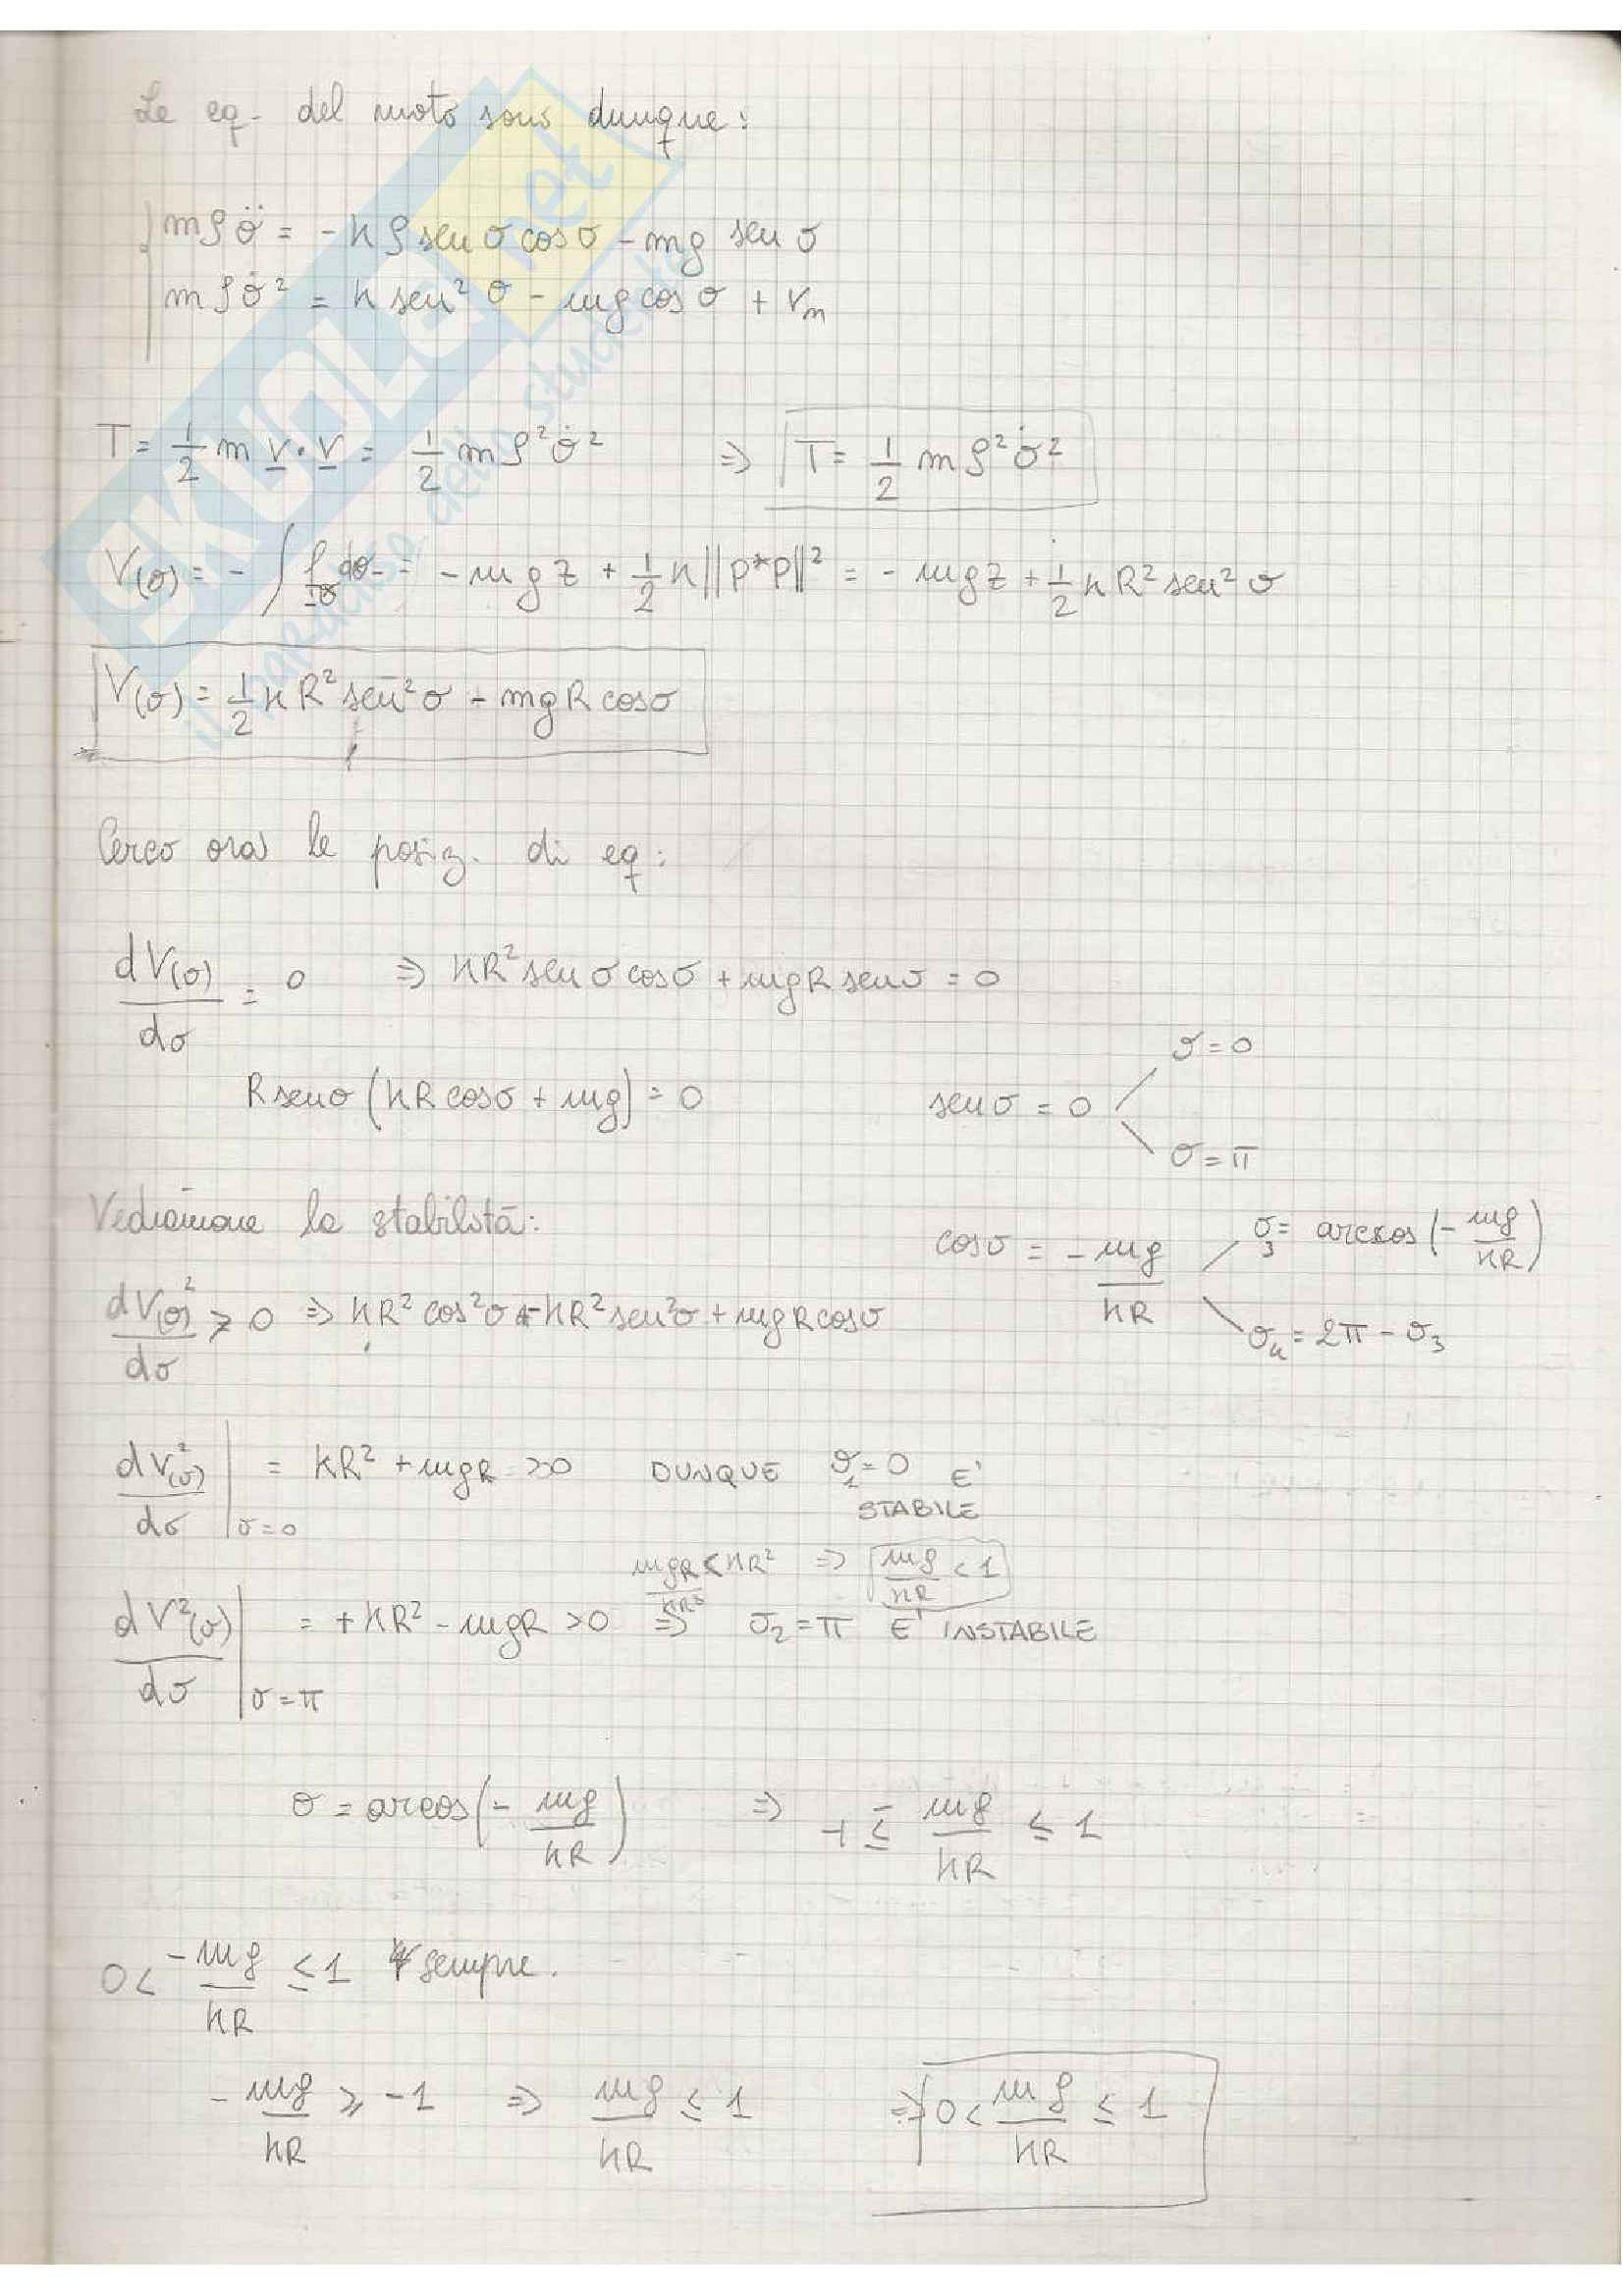 Le eq. del moto sono dunque:
mρσ̈ = -kρ sen σ cos σ - mg sen σ
mρσ̇² = k sen² σ - mg cos σ + rₙ
T = 1/2 m v · v = 1/2 mρ²σ̇² ⇒ T = 1/2 mρ²σ̇²
V(σ) = - ∫ f dσ = - mgz + 1/2 k||P*P||² = - mgz + 1/2 kR² sen² σ
V(σ) = 1/2 kR² sen² σ - mgR cos σ
Cerco ora le posiz. di eq:
dV(σ)/dσ = 0 ⇒ kR² sen σ cos σ + mgR sen σ = 0
R sen σ (kR cos σ + mg) = 0
sen σ = 0
σ = 0
σ = π
cos σ = - mg/kR
σ₃ = arccos(- mg/kR)
σ₄ = 2π - σ₃
Vediamone la stabilità:
dV(σ)²/dσ > 0 ⇒ kR² cos² σ - kR² sen² σ + mgR cos σ
dV²(σ)/dσ |σ=0 = kR² + mgR > 0 DUNQUE σ₁ = 0 E'
STABILE
mgR/kR² < kR² ⇒ mg/kR < 1
dV²(σ)/dσ |σ=π = + kR² - mgR > 0 ⇒ σ₂ = π E' INSTABILE
σ = arcos(- mg/kR) ⇒ -1 ≤ - mg/kR ≤ 1
0 < - mg/kR ≤ 1 sempre.
- mg/kR ≥ -1 ⇒ mg/kR ≤ 1 ⇒ 0 < mg/kR ≤ 1
SKUOLA.net